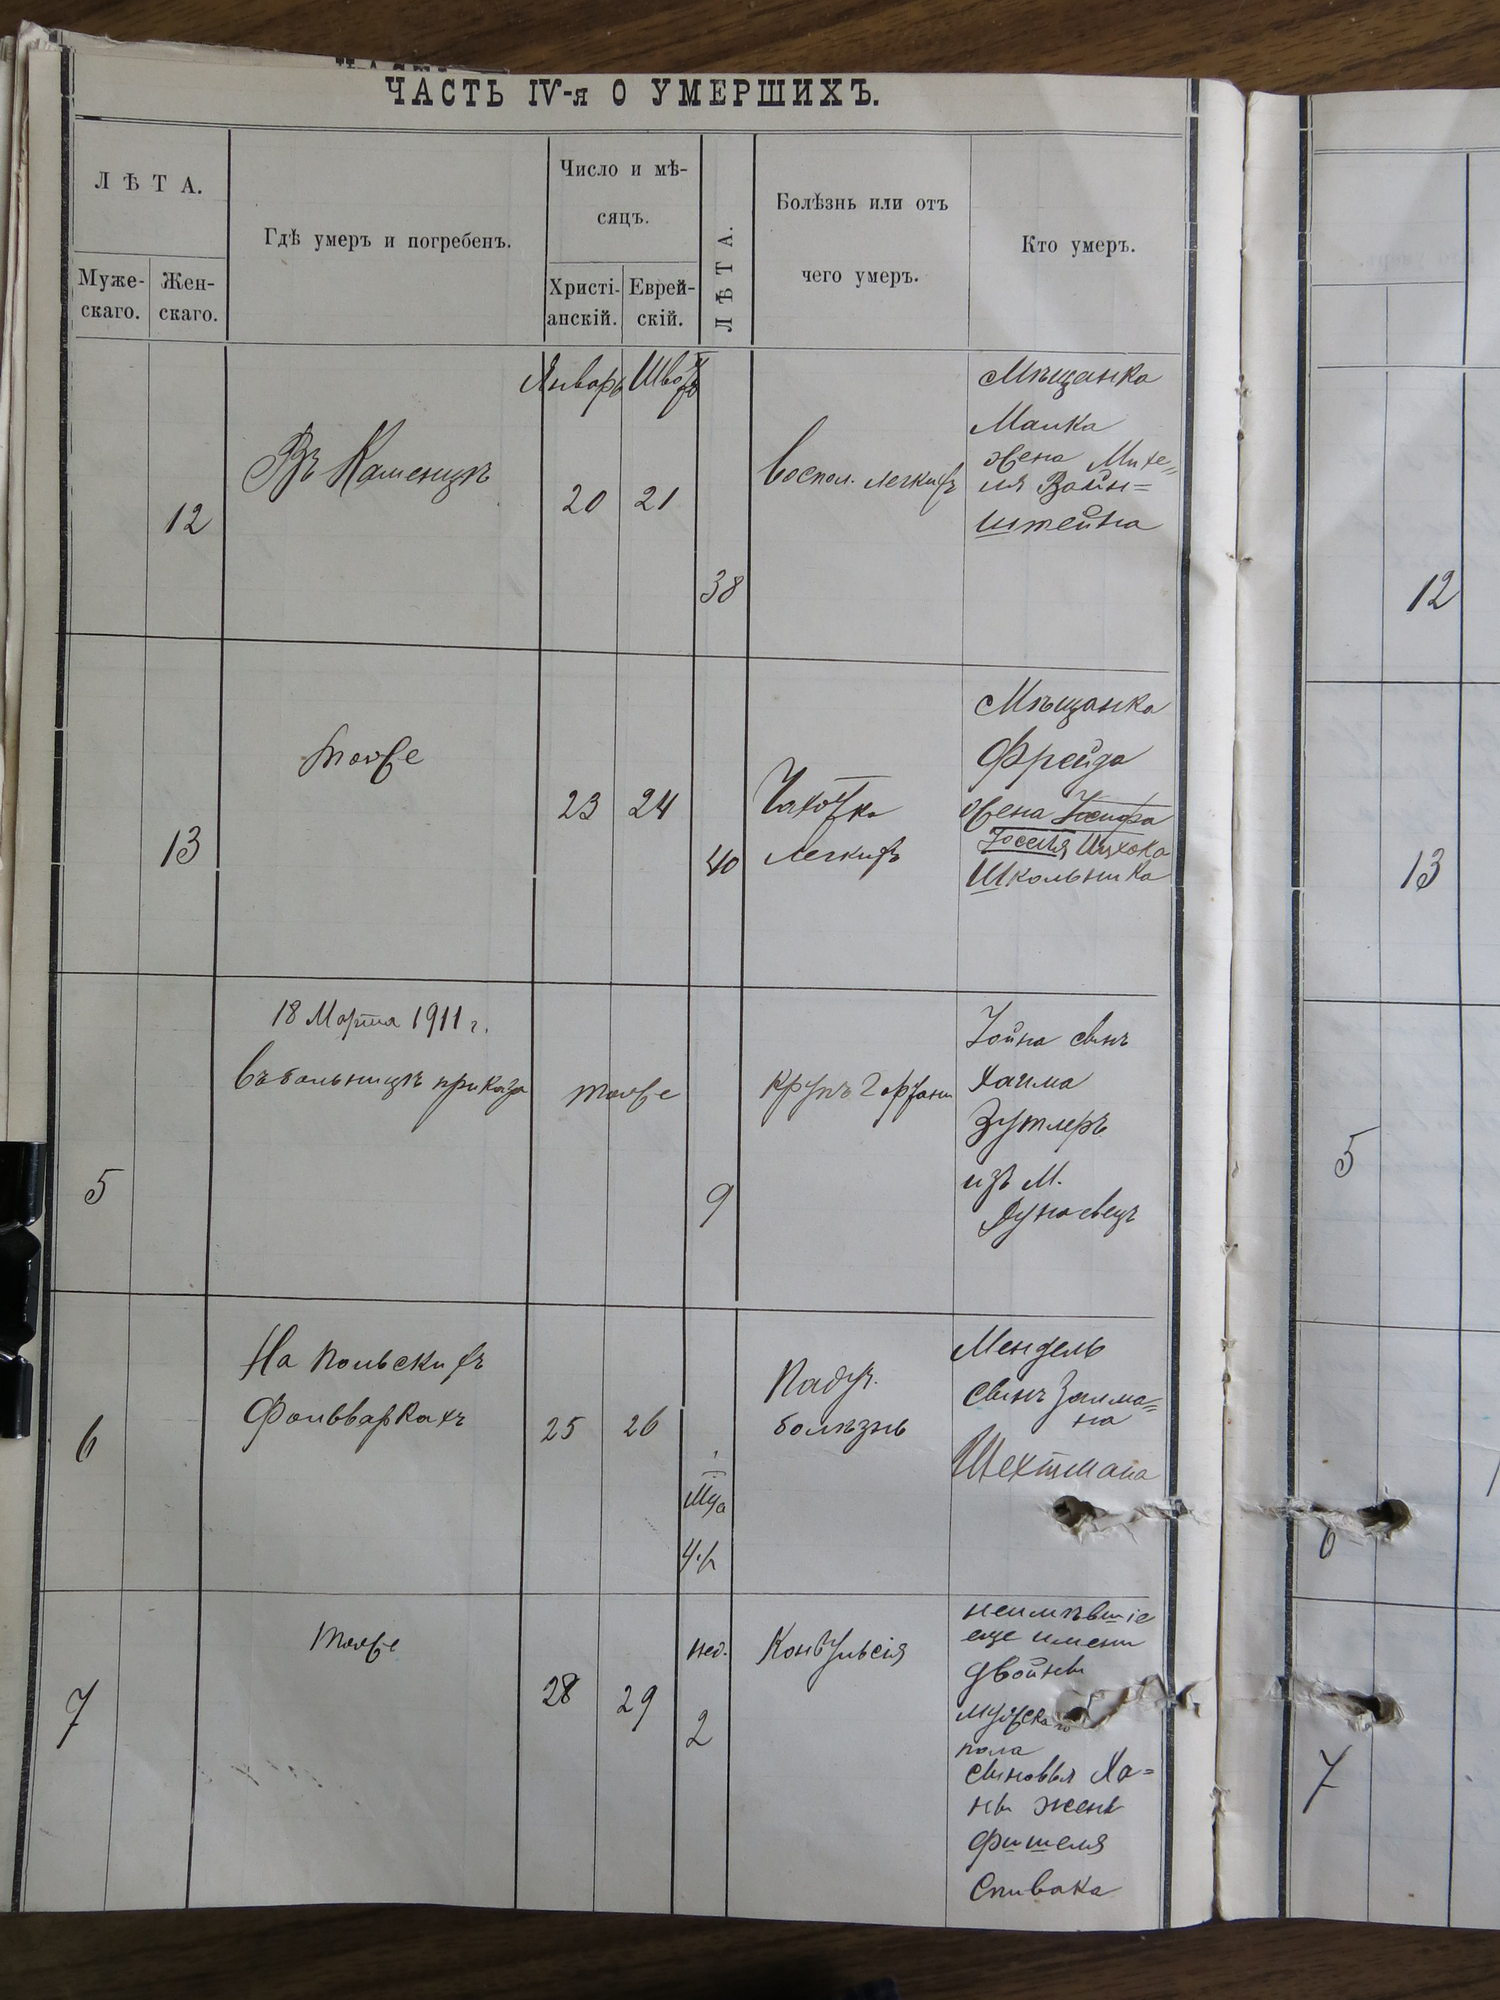 ЧАСТЬ IV-я О УМЕРШИХЪ.
ЛѢТА.
Муже-
скаго.
Жен-
скаго.
Гдѣ умеръ и погребенъ.
Число и мѣ-
сяцъ.
Христі-
анскій.
Еврей-
скій.
ЛѢТА.
Болѣзнь или отъ
чего умеръ.
Кто умеръ.
12
Въ Каменцѣ
Январь
20
Шватъ
21
38
Воспол. легкихъ
Мѣщанка
Малка
жена Михе=
ля Вайн=
штейна
12
13
тоже
23
24
40
Чахотка
легкихъ
Мѣщанка
Фрейда
жена Іосифа
Іоселя Ицхока
Школьника
13
5
18 Марта 1911 г.
въ больницѣ приказа
тоже
9
крупъ гортани
Іойна сынъ
Хаима
Зутлеръ
изъ М.
Дунаевецъ
5
6
На польскихъ
фольваркахъ
25
26
Падуч.
болѣзнь
Мендель
сынъ Залма=
на
Шехтмана
6
7
тоже
28
29
нед.
2
Конвульсія
неимѣвшіе
еще имени
двойни
мужскаго
пола
сыновья Ха=
ны жены
Фишеля
Спивака
7